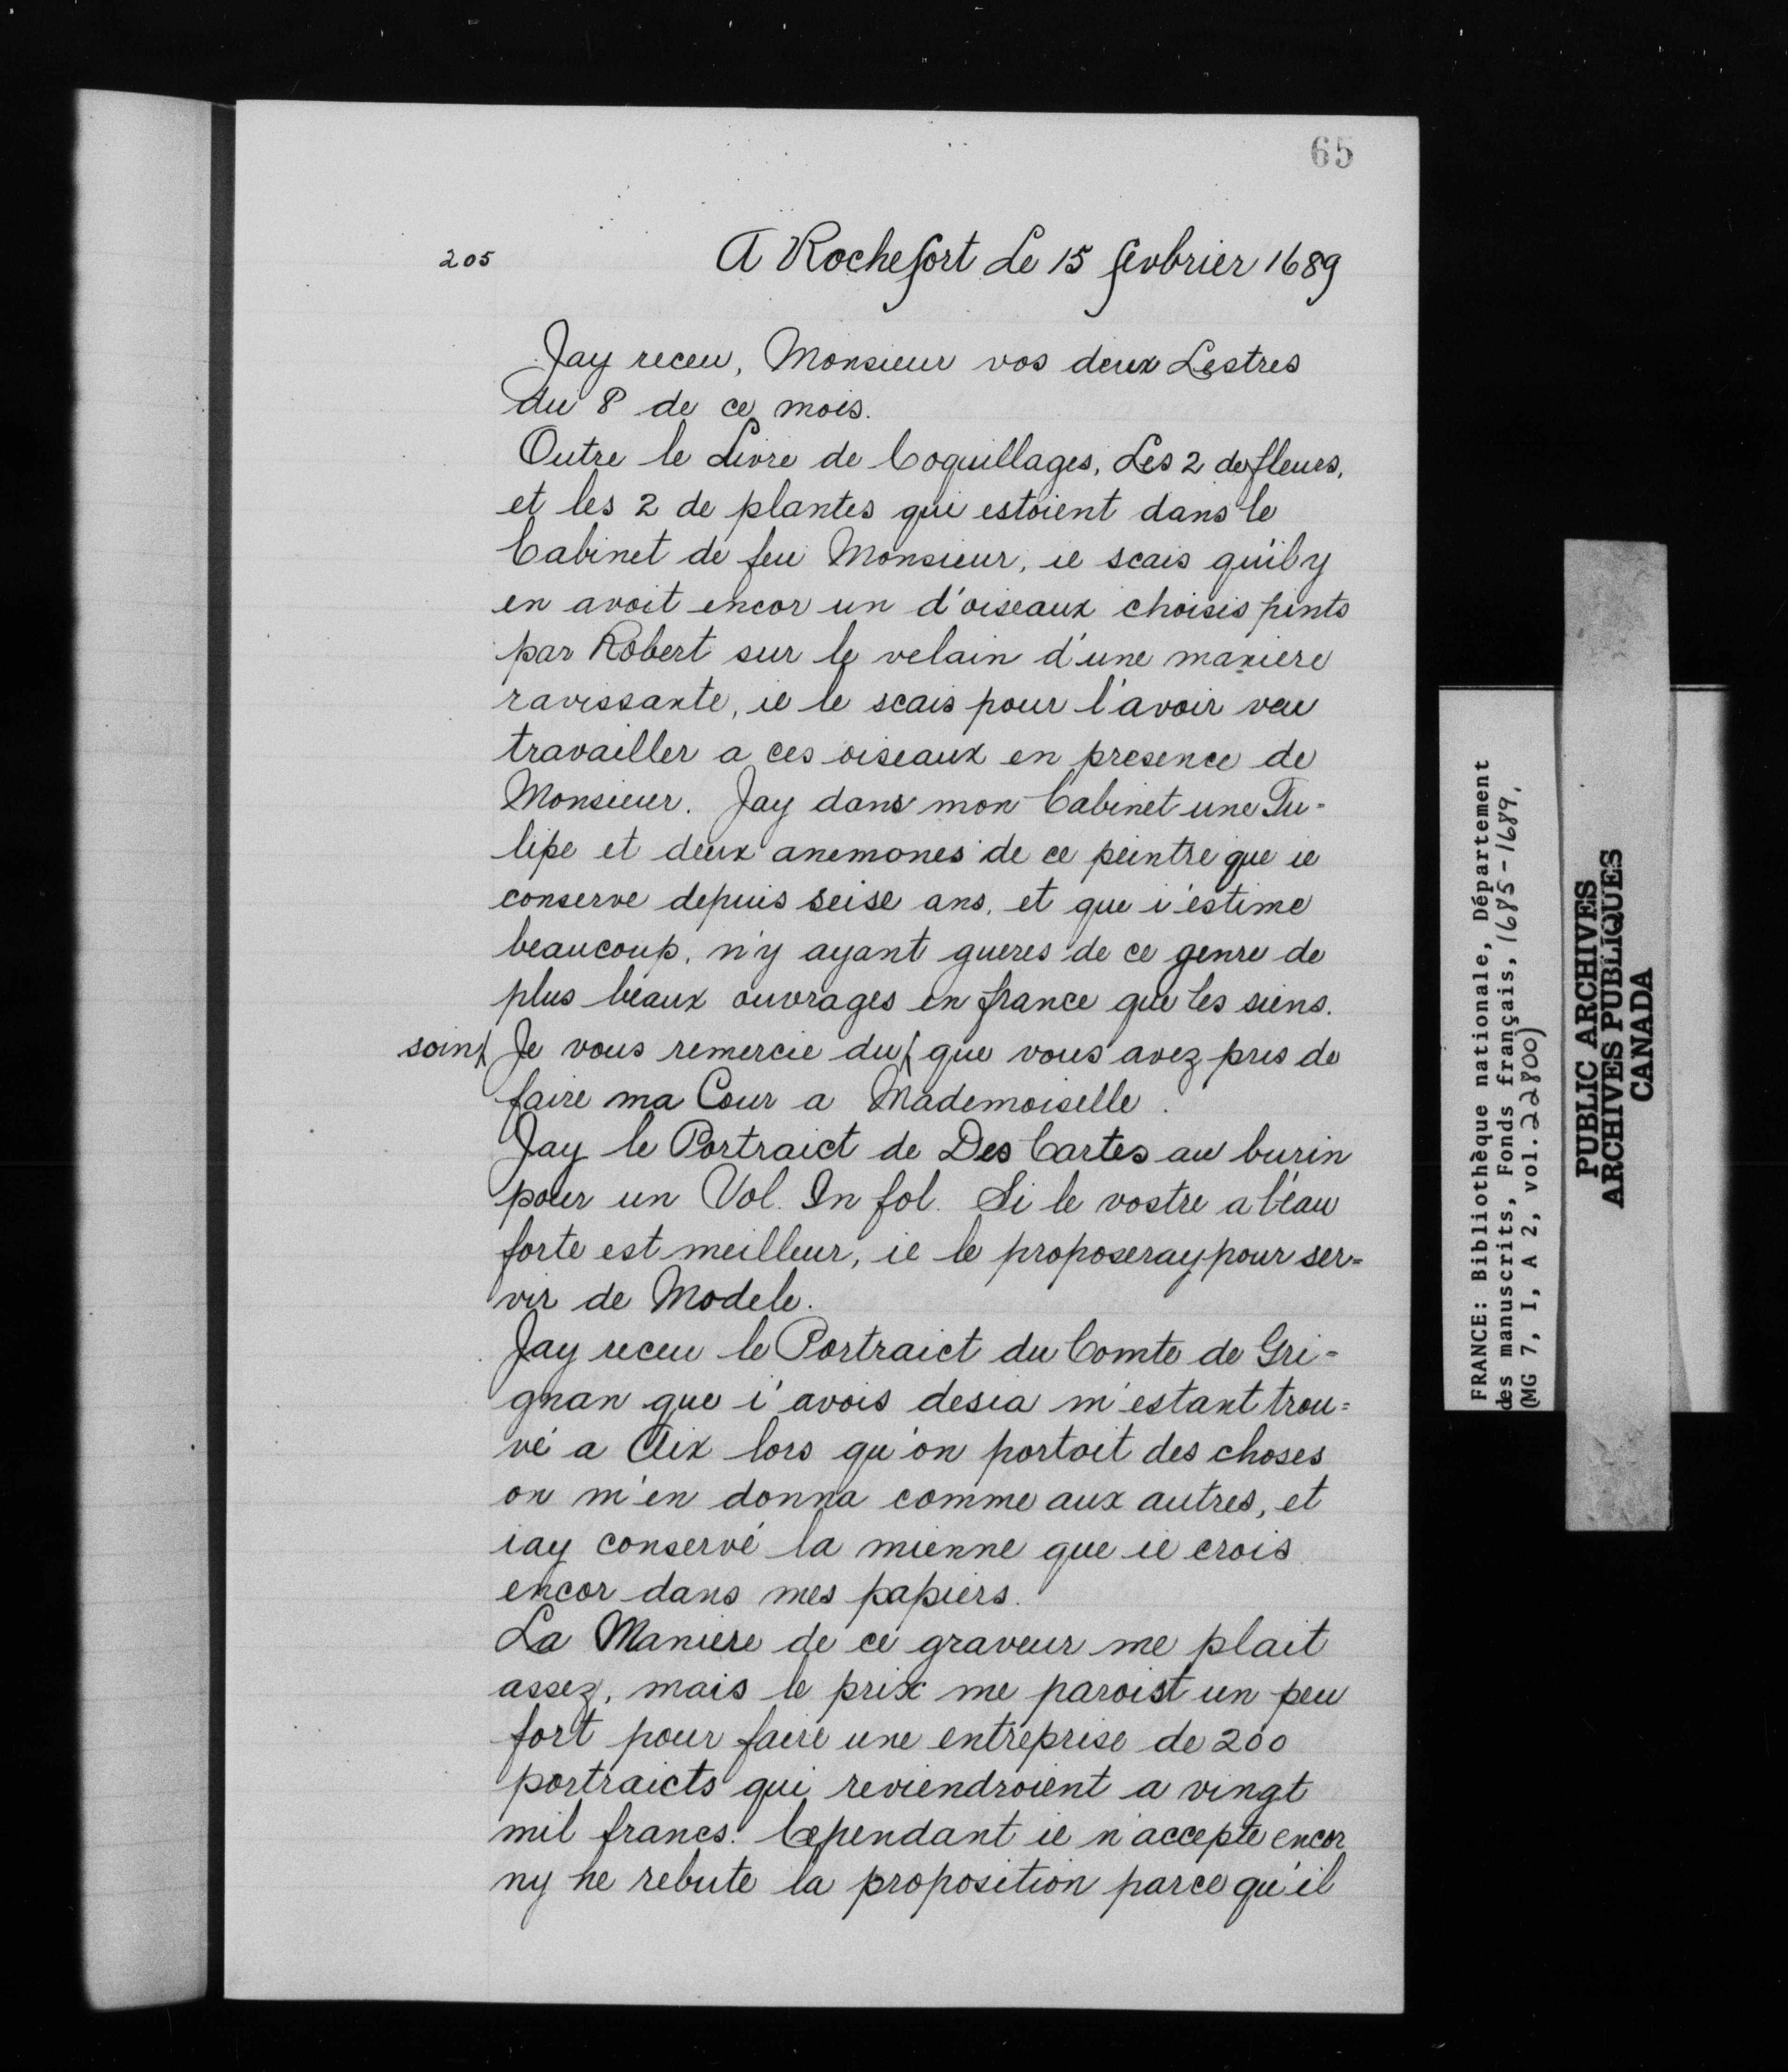 65
205
A Rochefort Le 15 fevbrier 1689
Jay receu, Monsieur vos deux Lestres
du 8 de ce mois.
Outre le Livre de Coquillages, Les 2 de fleurs,
et les 2 de plantes qui estoient dans le
Cabinet de feu Monsieur, ie scais qu'il y
en avoit encor un d'oiseaux choisis pints
par Robert sur le velain d'une maniere
ravissante, ie le scais pour l'avoir veu
travailler a ces oiseaux en presence de
Monsieur. Jay dans mon Cabinet une Tu=
lipe et deux anemones de ce peintre que ie
conserve depuis seise ans, et que i'estime
beaucoup, n'y ayant gueres de ce genre de
plus beaux ouvrages en france que les siens.
soin Je vous remercie du que vous avez pris de
faire ma Cour a Mademoiselle.
Jay le Portraict de Des Cartes au burin
pour un Vol. In fol. Si le vostre a l'eau
forte est meilleur, ie le proposeray pour ser=
vir de Modele.
Jay receu le Portraict du Comte de Gri=
gnan que i'avois desia m'estant trou=
vé a Aix lors qu'on portoit des choses
on m'en donna comme aux autres, et
iay conservé la mienne que ie crois
encor dans mes papiers.
La Maniere de ce graveur me plait
assez, mais le prix me paroist un peu
fort pour faire une entreprise de 200
portraicts qui reviendroient a vingt
mil francs. Cependant ie n'accepte encor
ny ne rebute la proposition parce qu'il
FRANCE: Bibliothèque nationale, Département
des manuscrits, Fonds français, 1685-1689,
(MG 7, I, A 2, vol. 22800)
PUBLIC ARCHIVES
ARCHIVES PUBLIQUES
CANADA